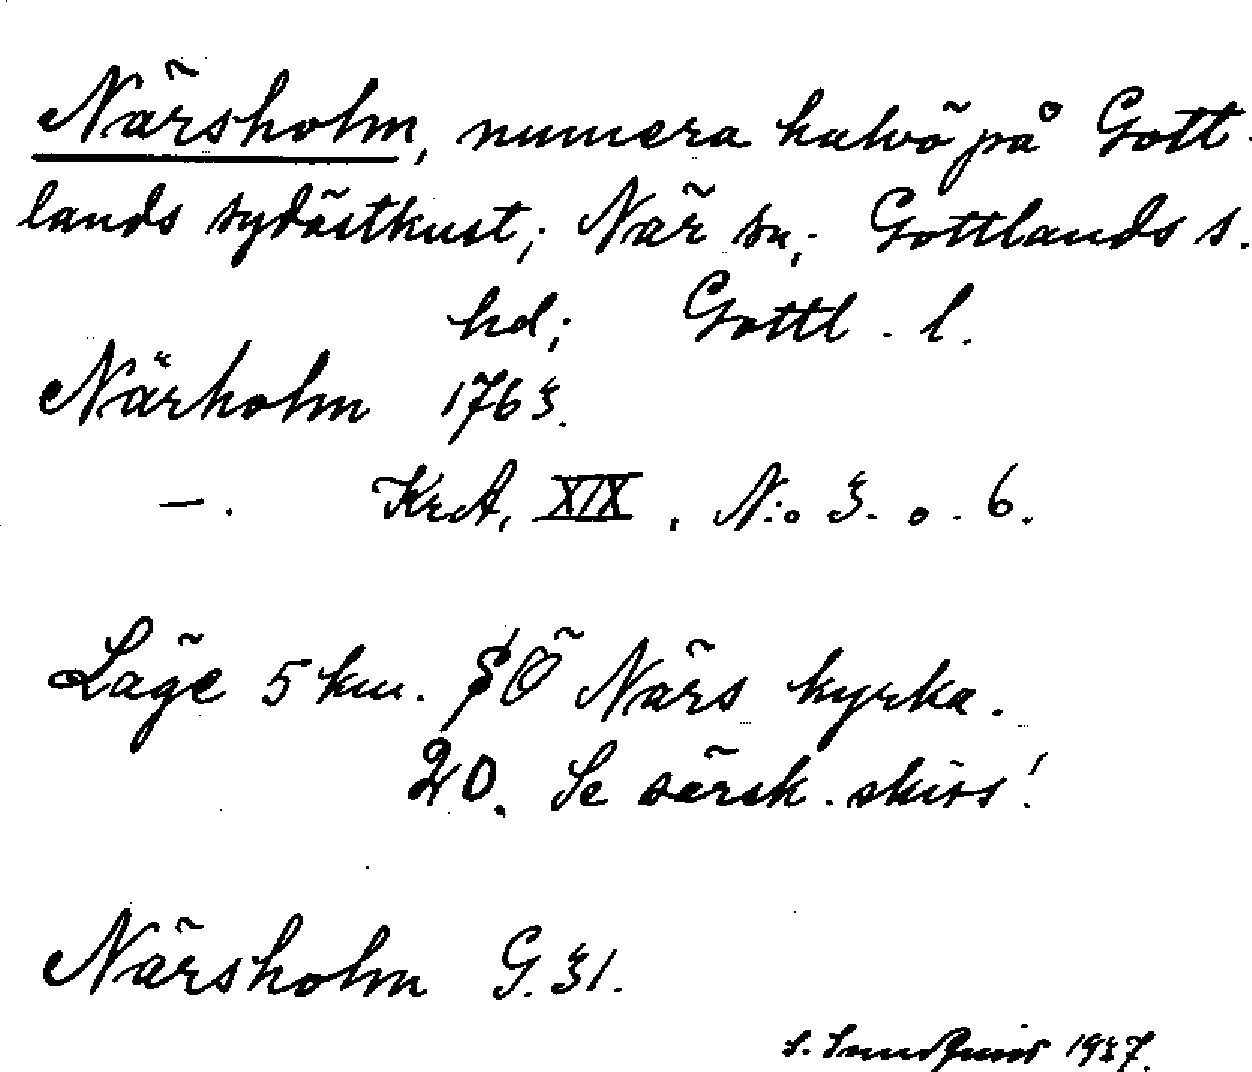 Närsholm, numera halvö på Gott-
lands sydöstkust; När sn; Gottlands s.
hd; Gottl. l.
Närholm 1763.
—. KrA, XIX, N:o 3. o. 6.
Läge 5 km. SÖ Närs kyrka.
20. Se särsk. skiss!
Närsholm G. 31.
1937.